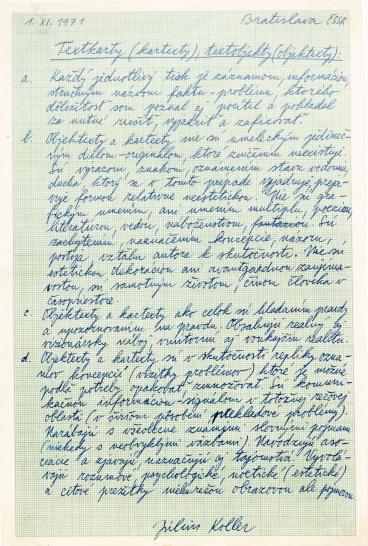 1. XI. 1971 Bratislava ČSSR
Textkarty (kartexty), textobjekty (objektexty):
a. Každý jednotlivý tisk je záznamom, informáciou
stručným názvom faktu - problému, ktorého
dôležitosť som poznal aj pocítil a pokladal
za nutné riešiť, vyjadriť a zafixovať.
b. Objektexty a kartexty nie sú umeleckým jedineč-
ným dielom - originálom, ktoré zničením neexistuje.
Sú výrazom, znakom, oznámením stavu vedomia,
ducha, ktorý sa v tomto prípade vyjadruje
formou relatívne neestetickou. Nie sú gra-
fickým umením, ani umením multiplu, poéziou,
literatúrou, vedou, náboženstvom, fantáziou. Sú
zachytením, naznačením koncepcie, názoru,
postoja, vzťahu autora k skutočnosti. Nie sú
estetickou dekoráciou ani avantgardnou zaujíma-
vosťou, sú samotným životom, činom človeka v
časopriestore.
c. Objektexty a kartexty ako celok sú hľadaním pravdy
a upozorňovaním na pravdu. Obsahujú reálny aj
vizionársky náboj, vnútornú aj vonkajšiu realitu.
d. Objektexty a kartexty sú v skutočnosti repliky ozna-
mov koncepcií (všetky problémov) ktoré je možné
podľa potreby opakovať, zmnožovať. Sú komuni-
kačnou informáciou - signálom v totožnej rečovej
oblasti (v širšom pôsobení prekladové problémy).
Narábajú s všeobecne známymi slovnými pojmami
(niekedy s neobvyklými väzbami). Navodzujú aso-
ciácie a zjavujú, naznačujú aj tajomstvá. Vyvolá-
vajú rozumové, psychologické, noetické (estetické)
a citové prežitky obrazovou ale
Július Koller